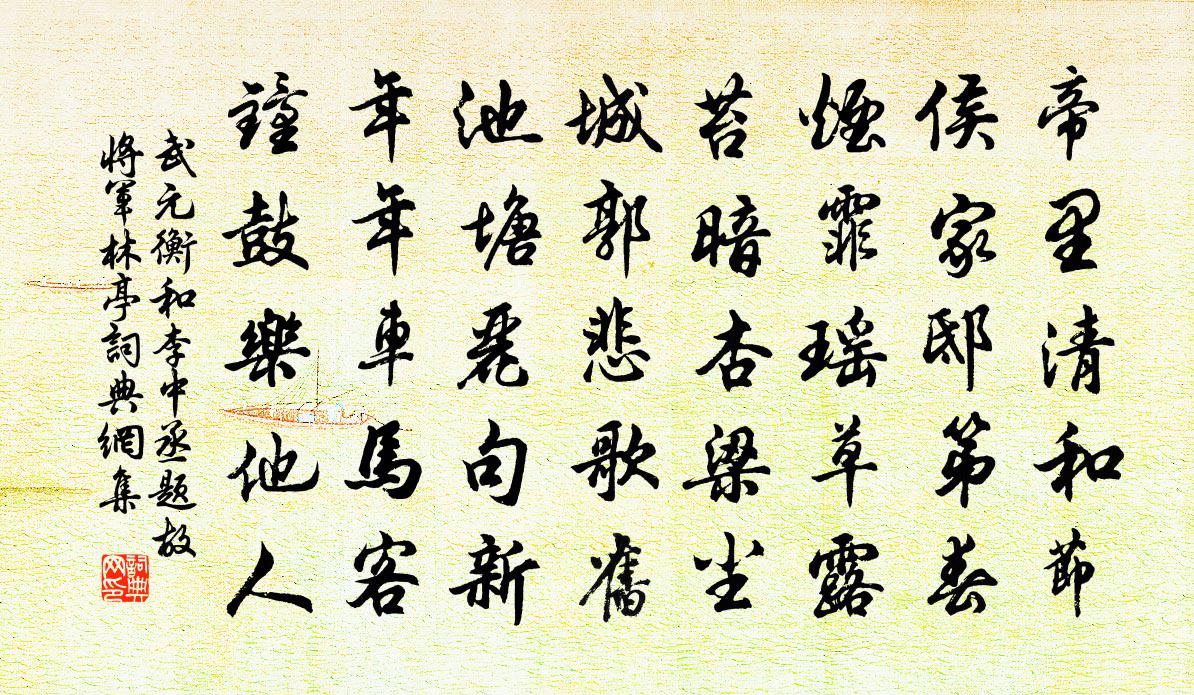 帝里清和節
侯家邸第春
煙霏瑶草露
苔暗杏梁尘
城郭悲歌舊
池塘麗句新
年年車馬客
鐘鼓樂他人
武元衡和李中丞题故
將軍林亭詞典網集
詞典
网印